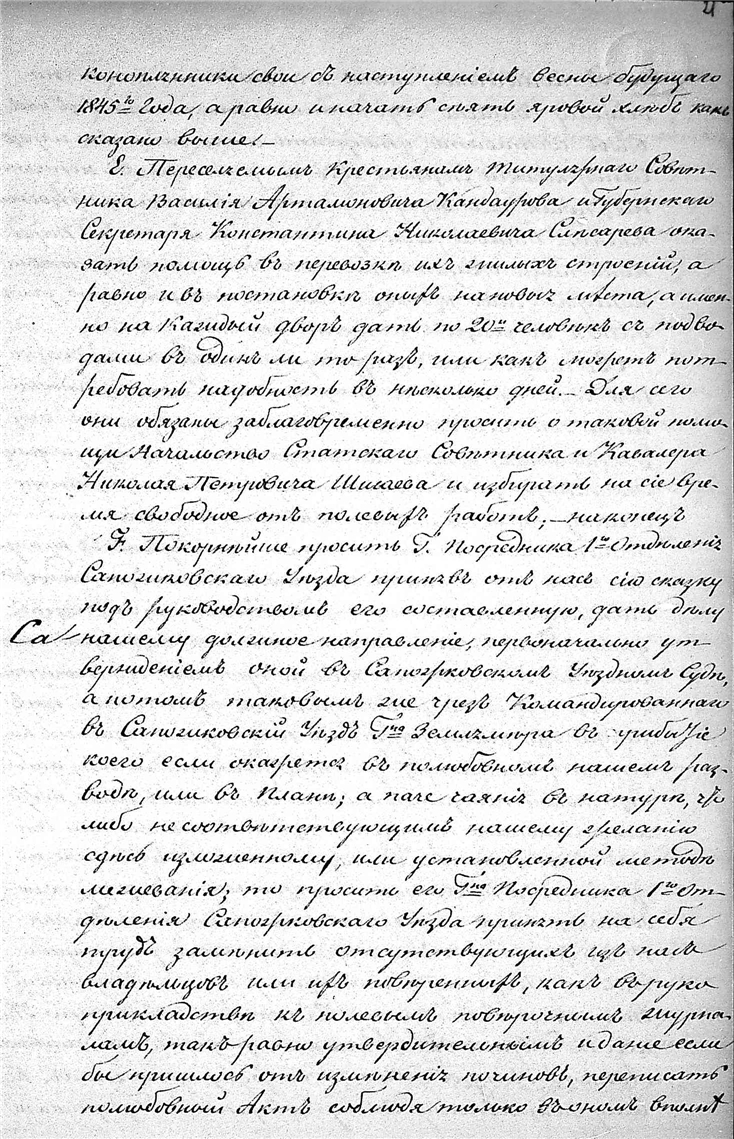 коноплянники свои съ наступленіемъ весны будущаго
1845го года, а равно и начать сѣять яровой хлѣбъ какъ
сказано выше. —
Е. Переселяемымъ Крестьянамъ Титулярнаго Совѣт-
ника Василія Артамоновича Кандаурова и Губернскаго
Секретаря Константина Николаевича Слѣсарева ока-
зать помощь въ перевозкѣ ихъ жилыхъ строеній, а
равно и въ постановкѣ оныхъ на новыя мѣста, а имен-
но на каждый дворъ дать по 20и человѣкъ съ подво-
дами въ одинъ ли то разъ, или какъ можетъ пот-
ребовать надобность въ нѣсколько дней. — Для сего
они обязаны заблаговременно просить о таковой помо-
щи Начальство Статскаго Совѣтника и Кавалера
Николая Петровича Шишаева и избирать на сіе вре-
мя свободное отъ полевыхъ работъ; — наконецъ
Г. Посредника 1го Отдѣленія
Сапожковскаго Уѣзда принявъ отъ насъ сію сказку
подъ руководствомъ его составленную, дать дѣлу
Са нашему должное направленіе, первоначально ут-
вержденіемъ оной въ Сапожковскомъ Уѣздномъ Судѣ,
а потомъ таковымъ же чрезъ Командированнаго
въ Сапожковскій Уѣздъ Гна Землемѣра въ прибытіе
коего если окажется въ полюбовномъ нашемъ раз-
водѣ, или въ планѣ; а паче чаянія въ натурѣ, что
либо не соотвѣтствующимъ нашему желанію
здѣсь изложенному, или установленной методѣ
межеванія; то просить его Гна Посредника 1го От-
дѣленія Сапожковскаго Уѣзда принять на себя
трудъ замѣнить отсутствующихъ изъ насъ
владѣльцовъ или ихъ повѣренныхъ, какъ въ руко
прикладствѣ къ полевымъ журна-
ламъ, такъ равно утвердительнымъ и даже если
бы пришлось отъ измѣненія починовъ, переписать
полюбовный Актъ соблюдя только въ ономъ вполнѣ